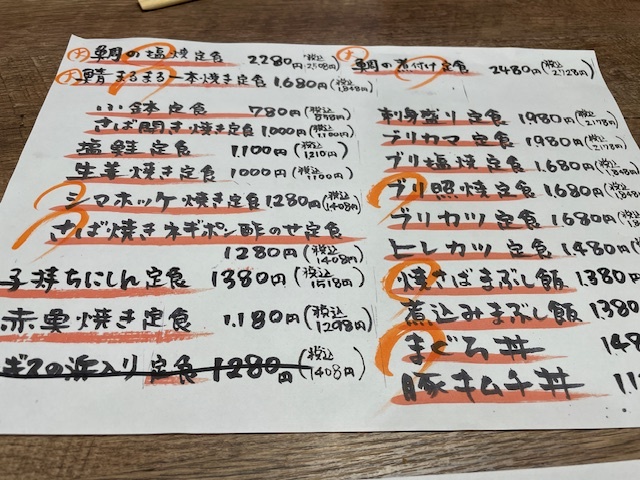 天 鯛の塩焼定食 2280円(税込2508円)
天 鯖まるまる一本焼き定食 1.680円(税込1.848円)
定食 780円(税込858円)
さば開き焼き定食 1000円(税込1,100円)
塩鮭定食 1.100円(税込1210円)
生姜焼き定食 1000円(税込1100円)
シマホッケ焼き定食 1280円(税込1408円)
さば焼きネギポン酢のせ定食
1280円(税込1408円)
子持ちにしん定食 1380円(税込1518円)
赤魚焼き定食 1.180円(税込1298円)
定食 1280円(税込1408円)
鯛の煮付け定食 2480円(税込2728円)
刺身盛り定食 1980円(税込2.178円)
ブリカマ定食 1980円(税込2.178円)
ブリ塩焼定食 1.680円(税込1.848円)
ブリ照焼定食 1.680円(税込1.848円)
ブリカツ定食 1680円(税込1.848円)
ヒレカツ定食 1.480円(税込
焼さばまぶし飯 1.380円
煮込みまぶし飯 1380
まぐろ丼 148
豚キムチ丼